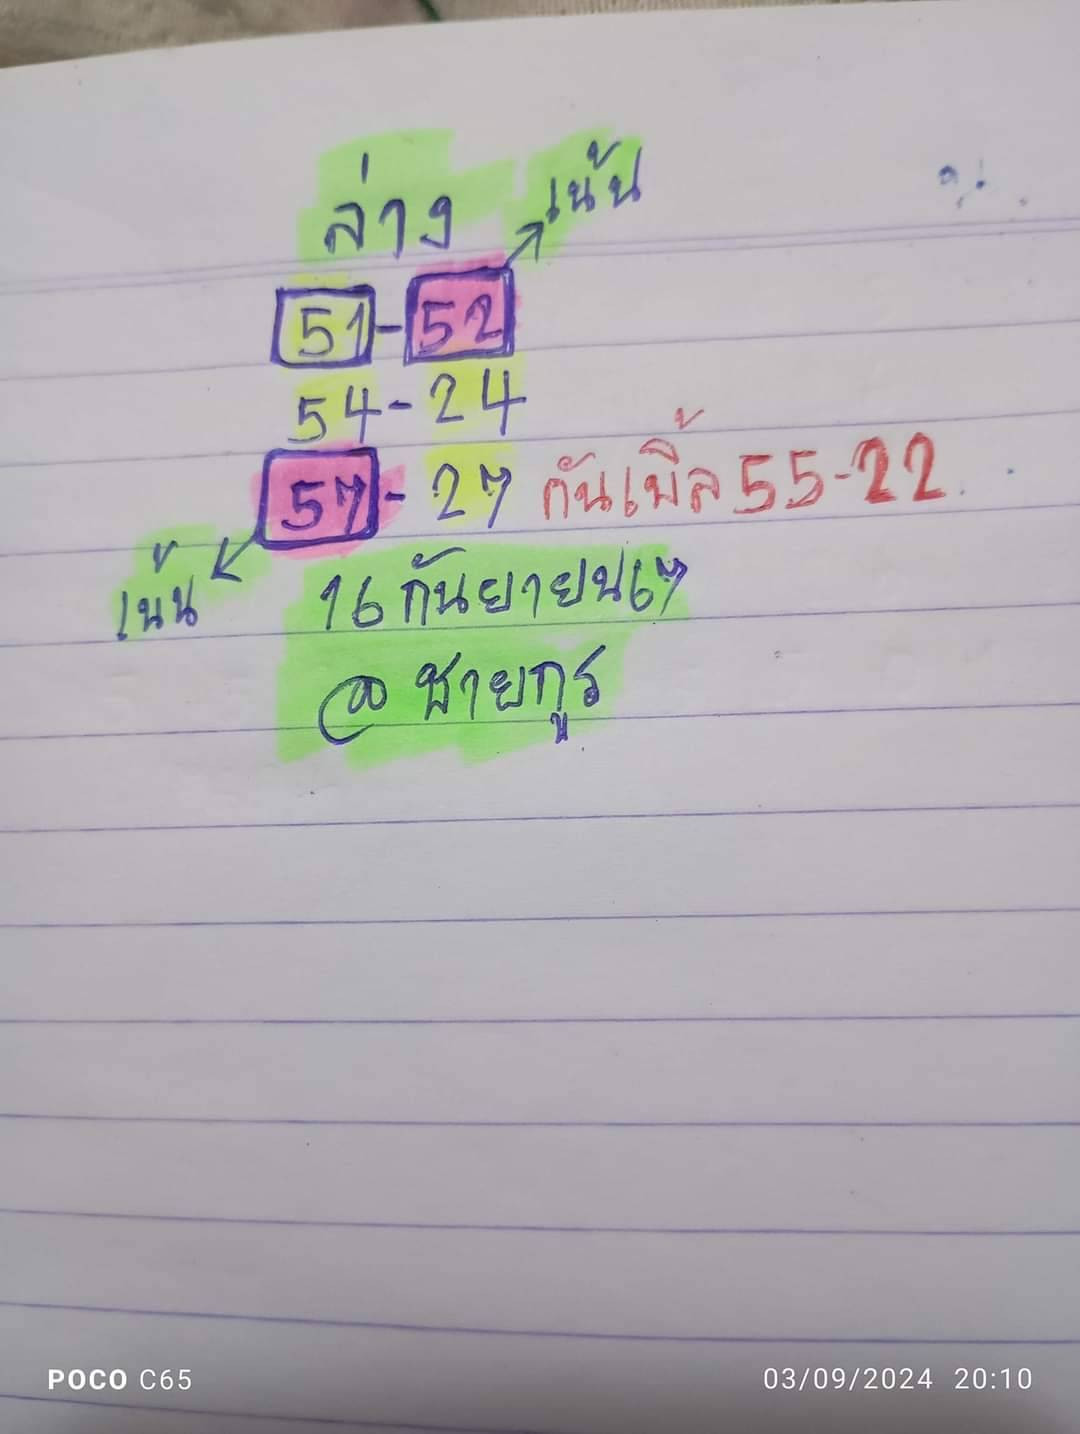 ล่าง
เน้น
51-52
54-24
57-27 กันเบิ้ล 55-22
เน้น
16 กันยายน 67
@ ชายกูร
POCO C65
03/09/2024 20:10